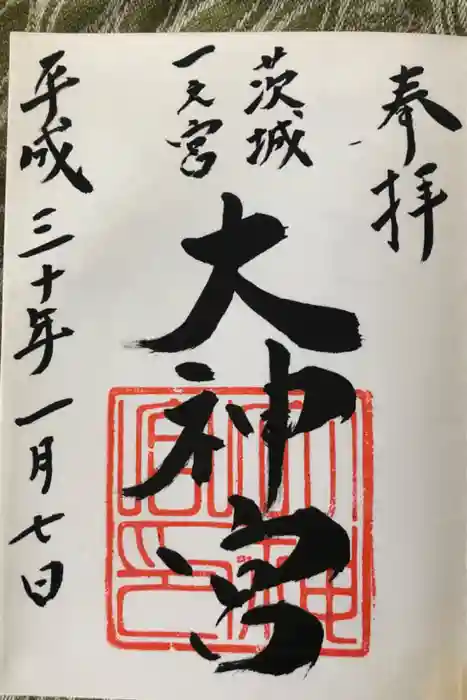 奉拝
茨城
一之宮
大神宮
平成三十年一月七日